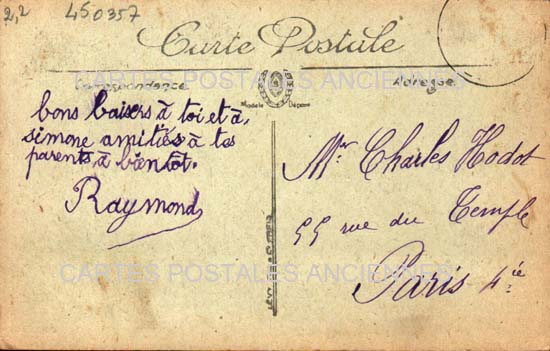 2,2
450357
Carte Postale
Correspondance
Adresse
Modèle Déposé
CARTES POSTALES ANCIENNES
bons baisers à toi et à
simone amitiés à tes
parents, à bientôt.
Raymond
Mr Charles Hodot
55 rue du Temple
Paris 4ie
CARTES POSTALES ANCIENNES